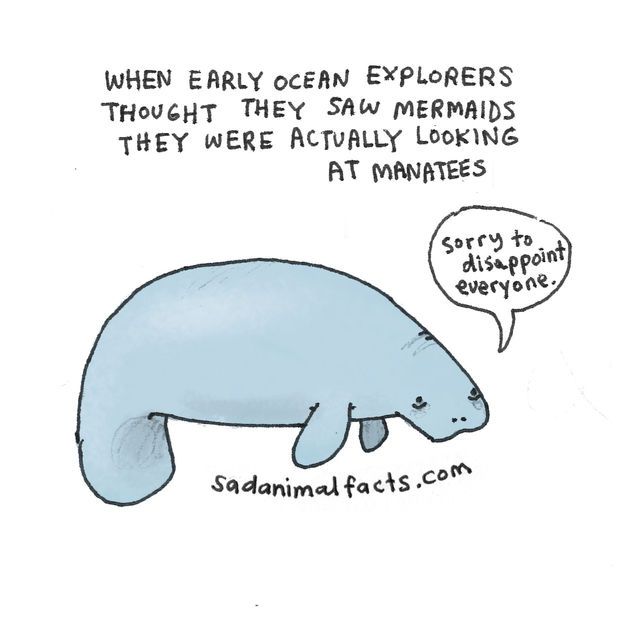 WHEN EARLY OCEAN EXPLORERS
THOUGHT THEY SAW MERMAIDS
THEY WERE ACTUALLY LOOKING
AT MANATEES
sorry to
disappoint
everyone.
sadanimalfacts.com